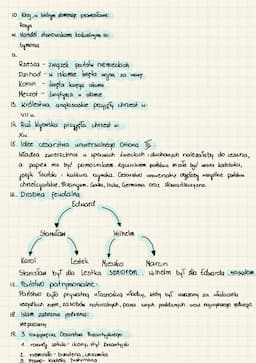 10. Kraj, w którym dominuje prawosławie:
Rosja
11. Handel stanowiskami kościelnymi to:
Symonia
12.
Rzesza - związek państw niemieckich
Dżihad - w islamie święta wojna za wiarę
Koran - święta księga islamu
Meczet - świątynia w islamie
13. Królestwa anglosaskie przyjęły chrzest w:
VII w.
14. Ruś Kijowska przyjęła chrzest w:
X w.
15. Idea cesarstwa uniwersalnego Ottona III:
Władza zwierzchnia w sprawach świeckich i duchownych należałaby do cesarza,
a papież miał być pomocnikiem. Łącznikiem państwa miała być wiara katolicka,
język łaciński i kultura rzymska. Cesarstwo uniwersalne objęłoby wszystkie państwa
chrześcijańskie, Bizancjum, Galię, Italię, Germanię oraz Słowiańszczyznę.
16. Drabina feudalna:
Edward
Stanisław Wilhelm
Karol Leszek Mieszko Marcin
Stanisław był dla Leszka seniorem. Wilhelm był dla Edwarda wasalem
17. Państwo patrymonialne:
Państwo będące prywatną własnością władcy, który był uważany za właściciela
wszystkich ziem, zasobów naturalnych, pana swych poddanych oraz najwyższego sędziego
18. Islam zabrania jedzenia:
wieprzowiny
19. 3 osiągnięcia Cesarstwa Bizantyjskiego:
1. rozwój sztuki: ikony, styl bizantyjski
2. rzemiosło - biżuteria, ceramika
3. Prawo - Kodeks Justyniana